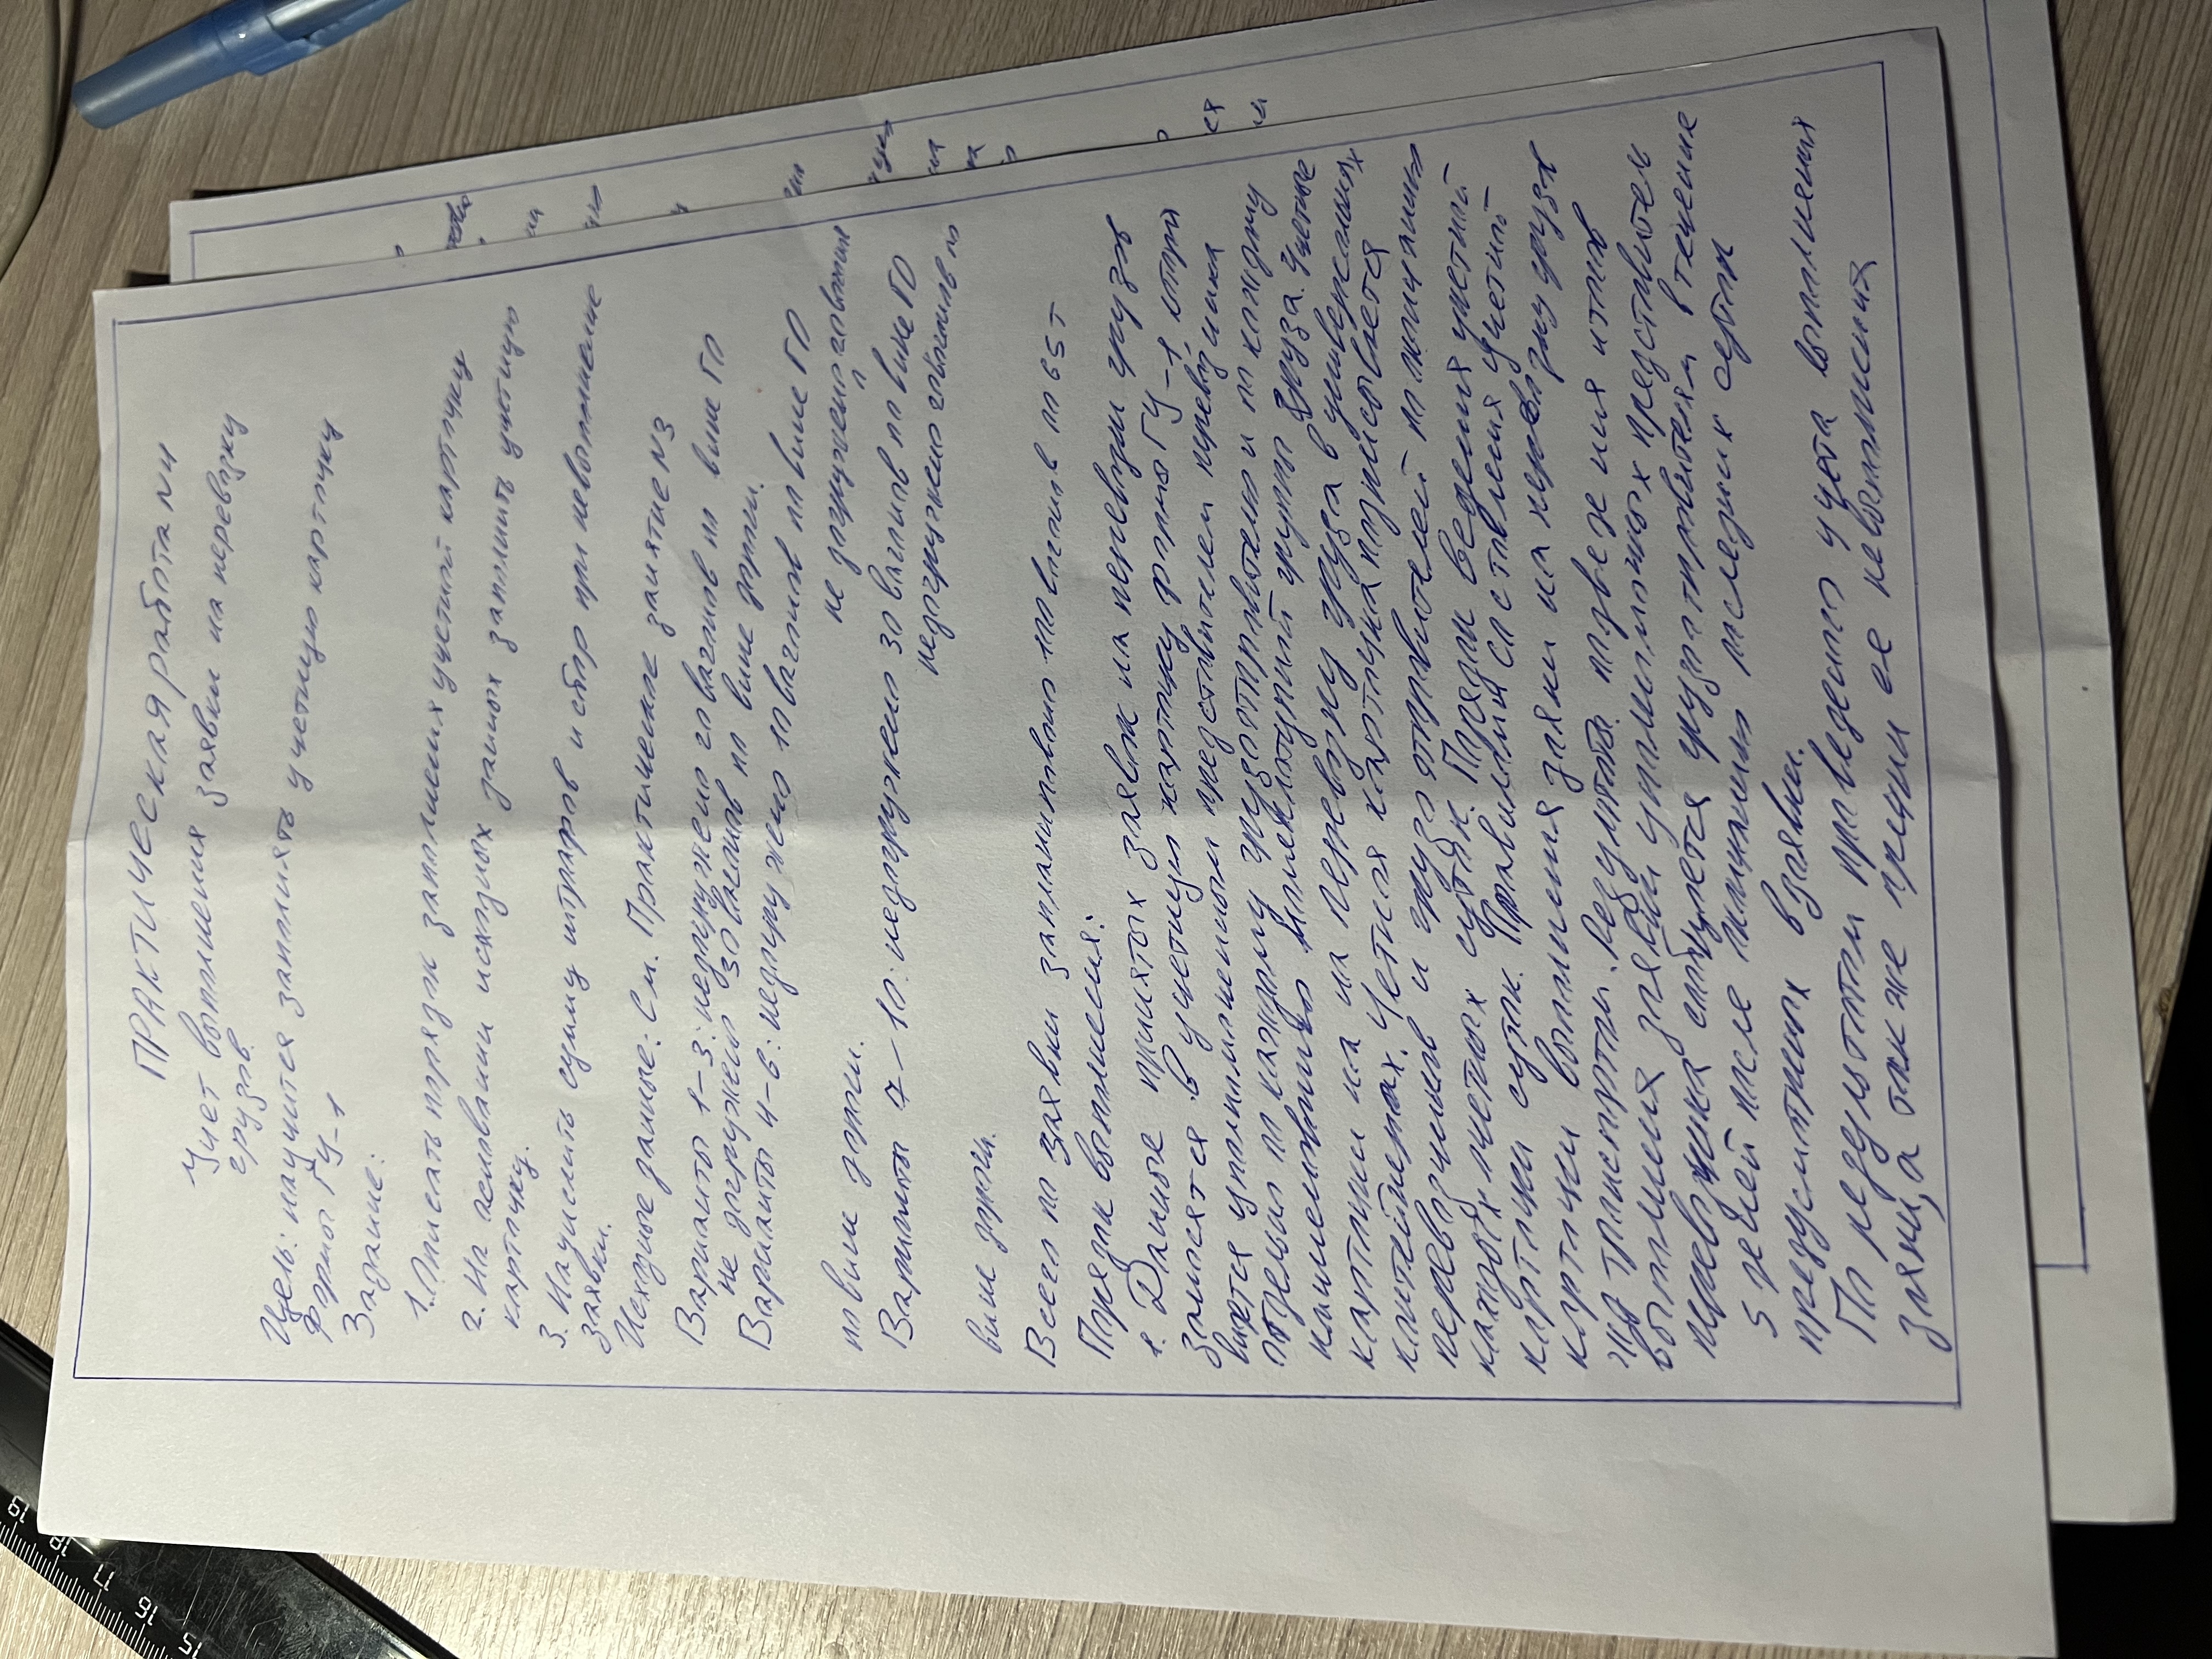 ПРАКТИЧЕСКАЯ работа N4
Учет выполнения заявки на перевозку
грузов.
Цель: научится заполнять учетную карточку
Формы ГУ-1
Задание:
1. Описать порядок заполнения учетной карточки
2. На основании исходных данных заполнить учетную
карточку.
3. Начислить сумму штрафов и сбор при невыполнение
заявки.
Исходные данные: См. Практическое занятие N3
Варианты 1-3: недогружено 20 вагонов по вине ГО
не догружено 30 вагонов по вине дороги.
Варианты 4-6: недогружено 10 вагонов по вине ГО
не догружено вагонов
по вине дороги.
Варианты 7-10: недогружено 30 вагонов по вине ГО
недогружено вагонов по
вине дороги.
Всего по заявки запланировано 100 вагонов по 65 т
Порядок выполнения:
1. Данные принятых заявок на перевозки грузов
заносятся в учетную карточку формы ГУ-1, которая
ведется уполномоченным представителем перевозчика
отдельно по каждому грузоотправителю и по каждому
наименованию номенклатурной группы груза. Учетные
карточки на на перевозку груза в универсальных
контейнерах. Учетная карточка подписывается
перевозчиков и грузоотправителей по окончании
каждых отчетных суток. Порядок ведения учетной
карточки суток. Правилами составления учетной
карточки выполнения заявки на перевозку груза
жд транспортом. Результата подведения итогов
выполнения заявки уполномоченных представитель
перевозчика грузоотправителем в течение
5 дней после окончания последних суток
предусмотренных в заявки.
По результатам проведенного учета выполнения
заявки, а также причин ее невыполнения
15
16
17
18
19